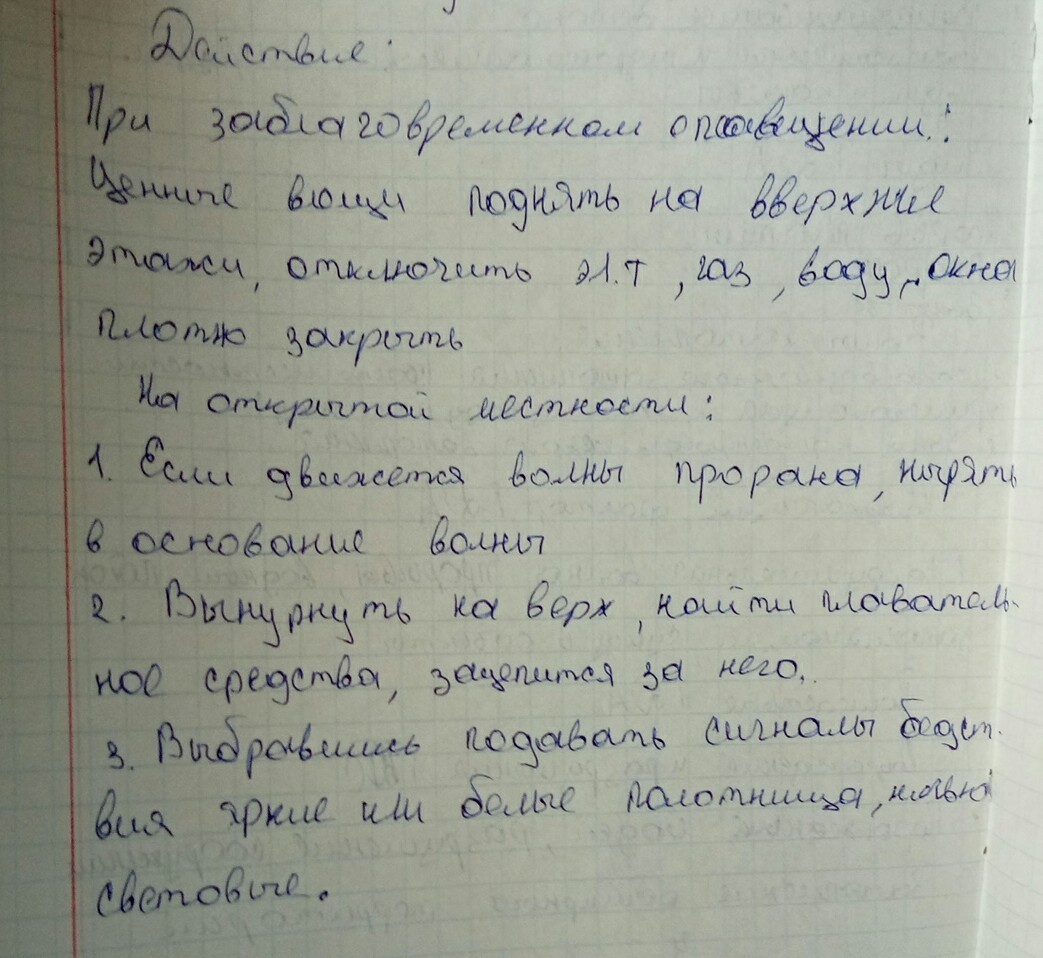 Действие:
При заблаговременном оповещении:
Ценные вещи поднять на вверхние
этажи, отключить эл.т, газ, воду, окна
плотно закрыть
На открытой местности:
1. Если движется волны прорана, нырять
в основание волны
2. Вынурнуть на верх, найти плаватель-
ное средства, зацепится за него.
3. Выбравшись подавать сигналы бедст-
вия яркие или белые полотнища, ночью
световые.